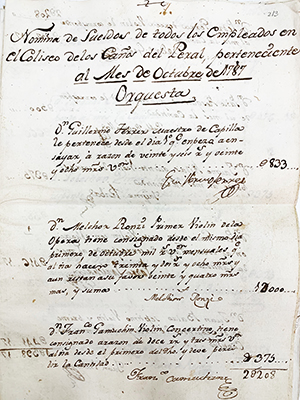 Nomina de Sueldos de todos los Empleados en
el Coliseo de los Caños del Peral, perteneciente
al Mes de Octubre de 1787
Orquesta
Dn. Guillermo Ferrer Maestro de Capilla
le pertenece desde el dia 1º que enpezo a en-
sayar, à razon de veinte y seis rs. y veinte
y ocho mrs.
833
Dn. Melchor Ronzi Primer Violin de la
Opera tiene consignado desde el mismo dia
primero de octubre mil rs. vn. mensuales
al dia hacen treinta y dos rs. y ocho mrs.
veinte y quatro mrs
mas, y suma
1000
Melchor Ronzi
Dn. Fran.co Violin Concertino, tiene
consignado a razon de doce rs. y tres mrs.
al dia desde el primero de dho. y deve perci-
bir la Cantidad
375
2208
Fran.co